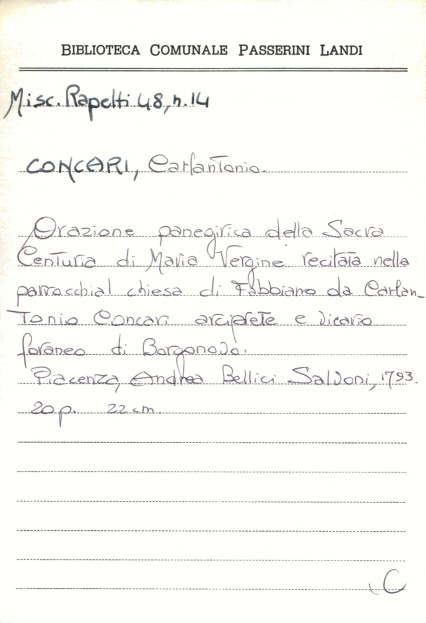 BIBLIOTECA COMUNALE PASSERINI LANDI
Misc. Rapetti 48, n. 14
CONCARI, Carlantonio.
Orazione panegirica della Sacra
Centuria di Maria Vergine recitata nella
parrocchial chiesa di Fabbiano da Carlan-
tonio Concari arciprete e vicario
foraneo di Borgonovo.
Piacenza, Andrea Bellici Salvoni, 1793.
20 p. 22 cm.
C